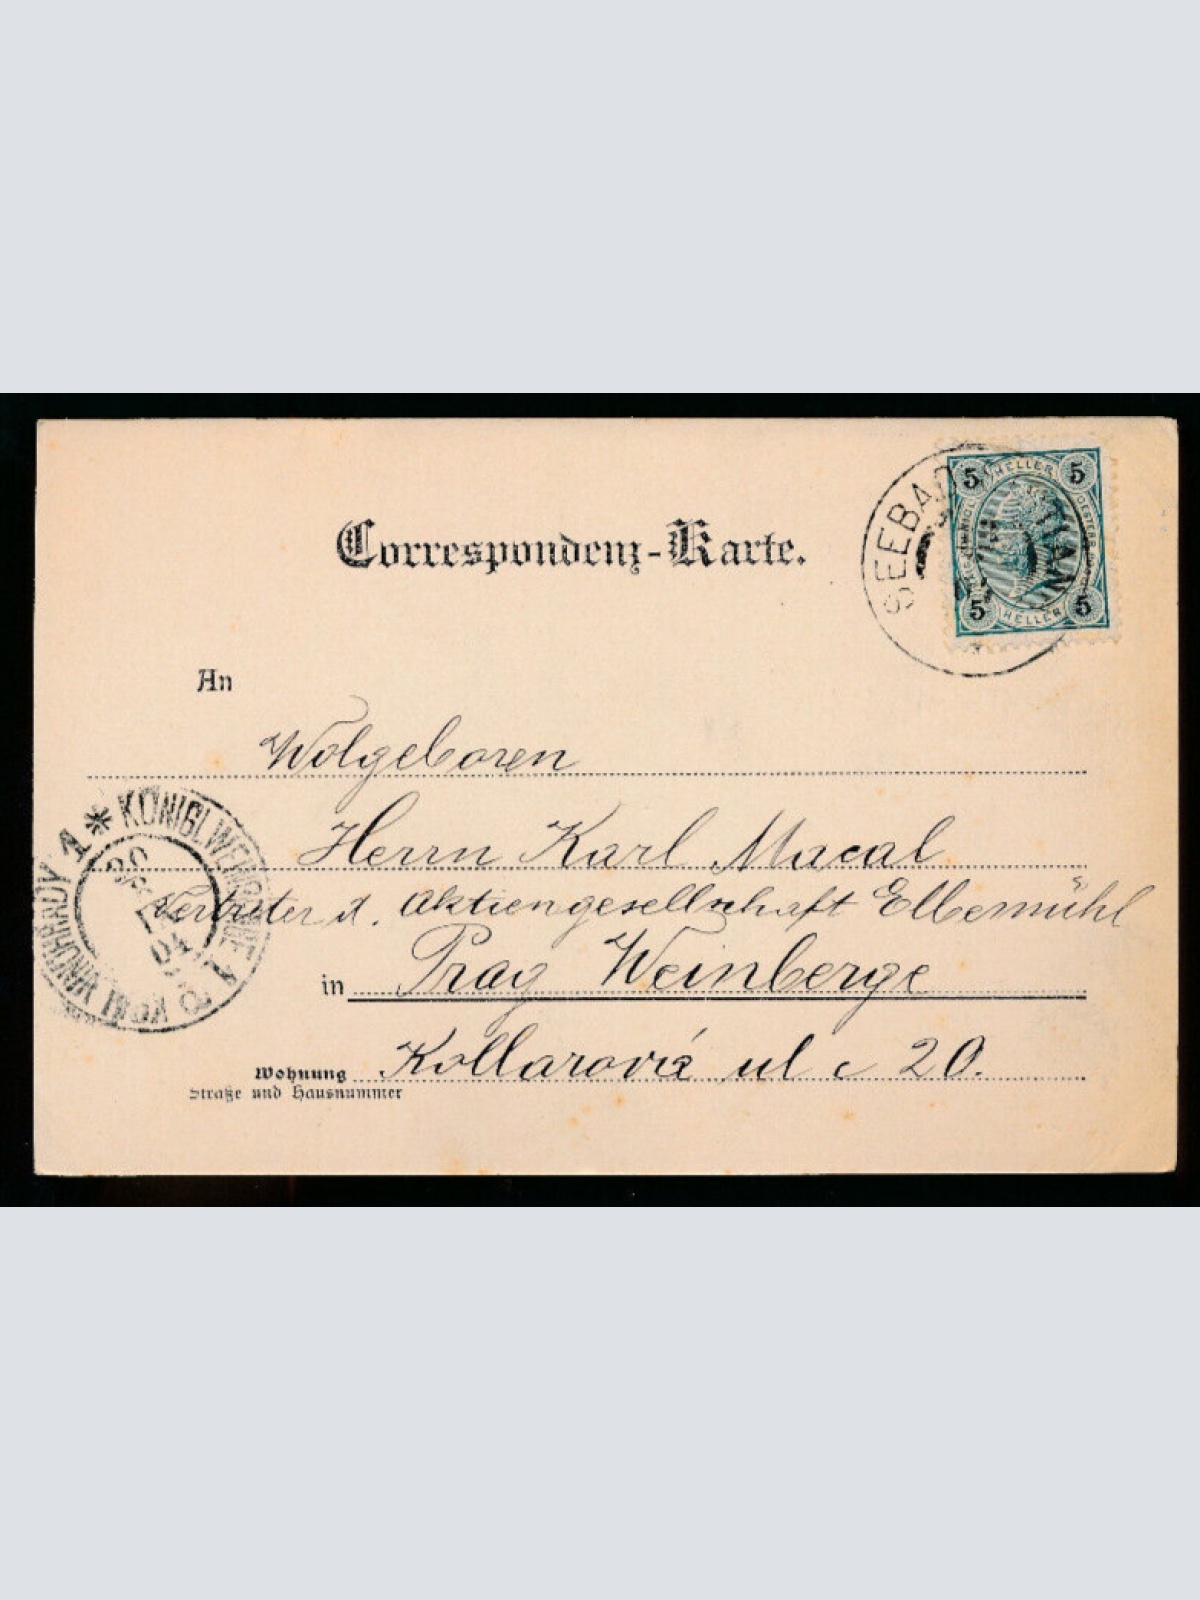 Correspondenz-Karte.
SEEBAD
HELLER
5 5
5 5
HELLER
An
Wolgeboren
Herrn Karl Macal
Vertreter d. Aktiengesellschaft Elbemühl
in Prag Weinberge
Kollarova ul c 20.
Wohnung
Straße und Hausnummer
1 * KÖNIGL. WEINBERGE 1
KGL. VINOHRADY